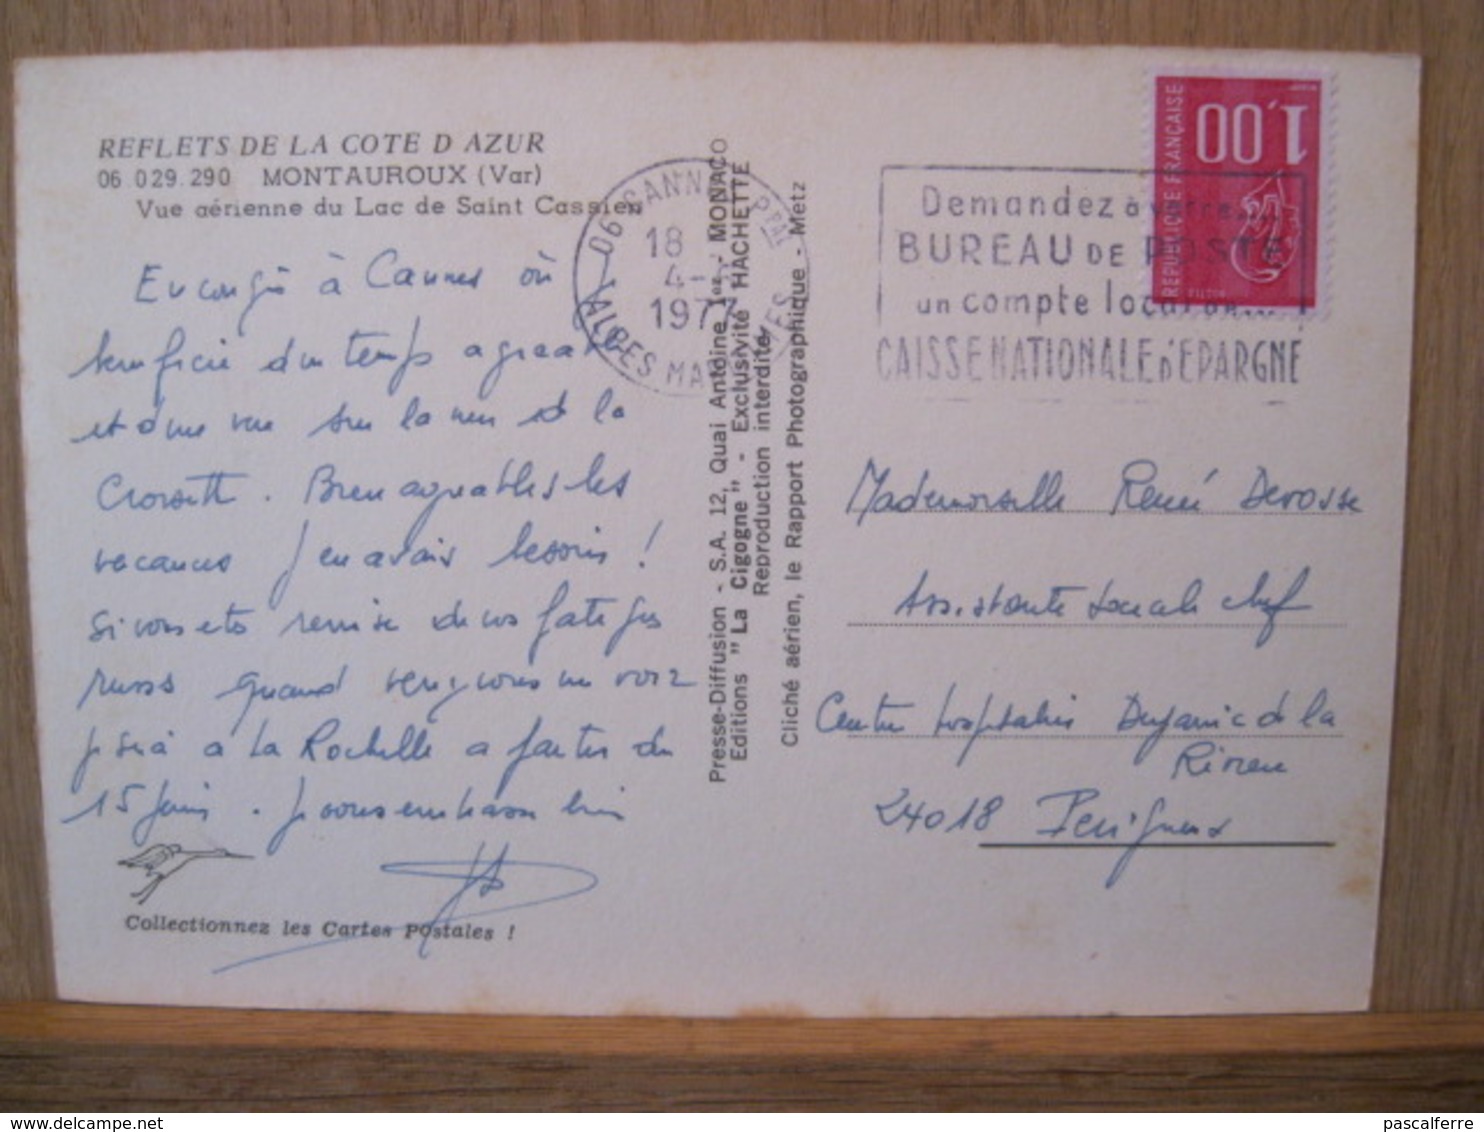 REFLETS DE LA COTE D AZUR
06 029.290 MONTAUROUX (Var)
Vue aérienne du Lac de Saint Cassien
En congé à Cannes où
bénéficie d'un temps agréable
et d'une vue sur la mer et la
Croisette. Bien agréables les
vacances j'en avais besoin !
Si vous êtes remise de vos fatigues
russes quand venez vous me voir
je serai à La Rochelle à partir du
15 juin. Je vous embrasse bien
Collectionnez les Cartes Postales !
06 CANNES Pal
18
4-
1977
ALPES MARITIMES
Presse-Diffusion - S.A. 12, Quai Antoine 1er - MONACO
Editions "La Cigogne" - Exclusivité HACHETTE
Reproduction interdite
Cliché aérien, le Rapport Photographique - Metz
1,00
REPUBLIQUE FRANÇAISE
Demandez à votre
BUREAU DE POSTE
un compte local
CAISSE NATIONALE D'EPARGNE
Mademoiselle René Derosse
Assistante sociale chef
Centre hospitalier
de la
24018 Perigueux
pascalferre